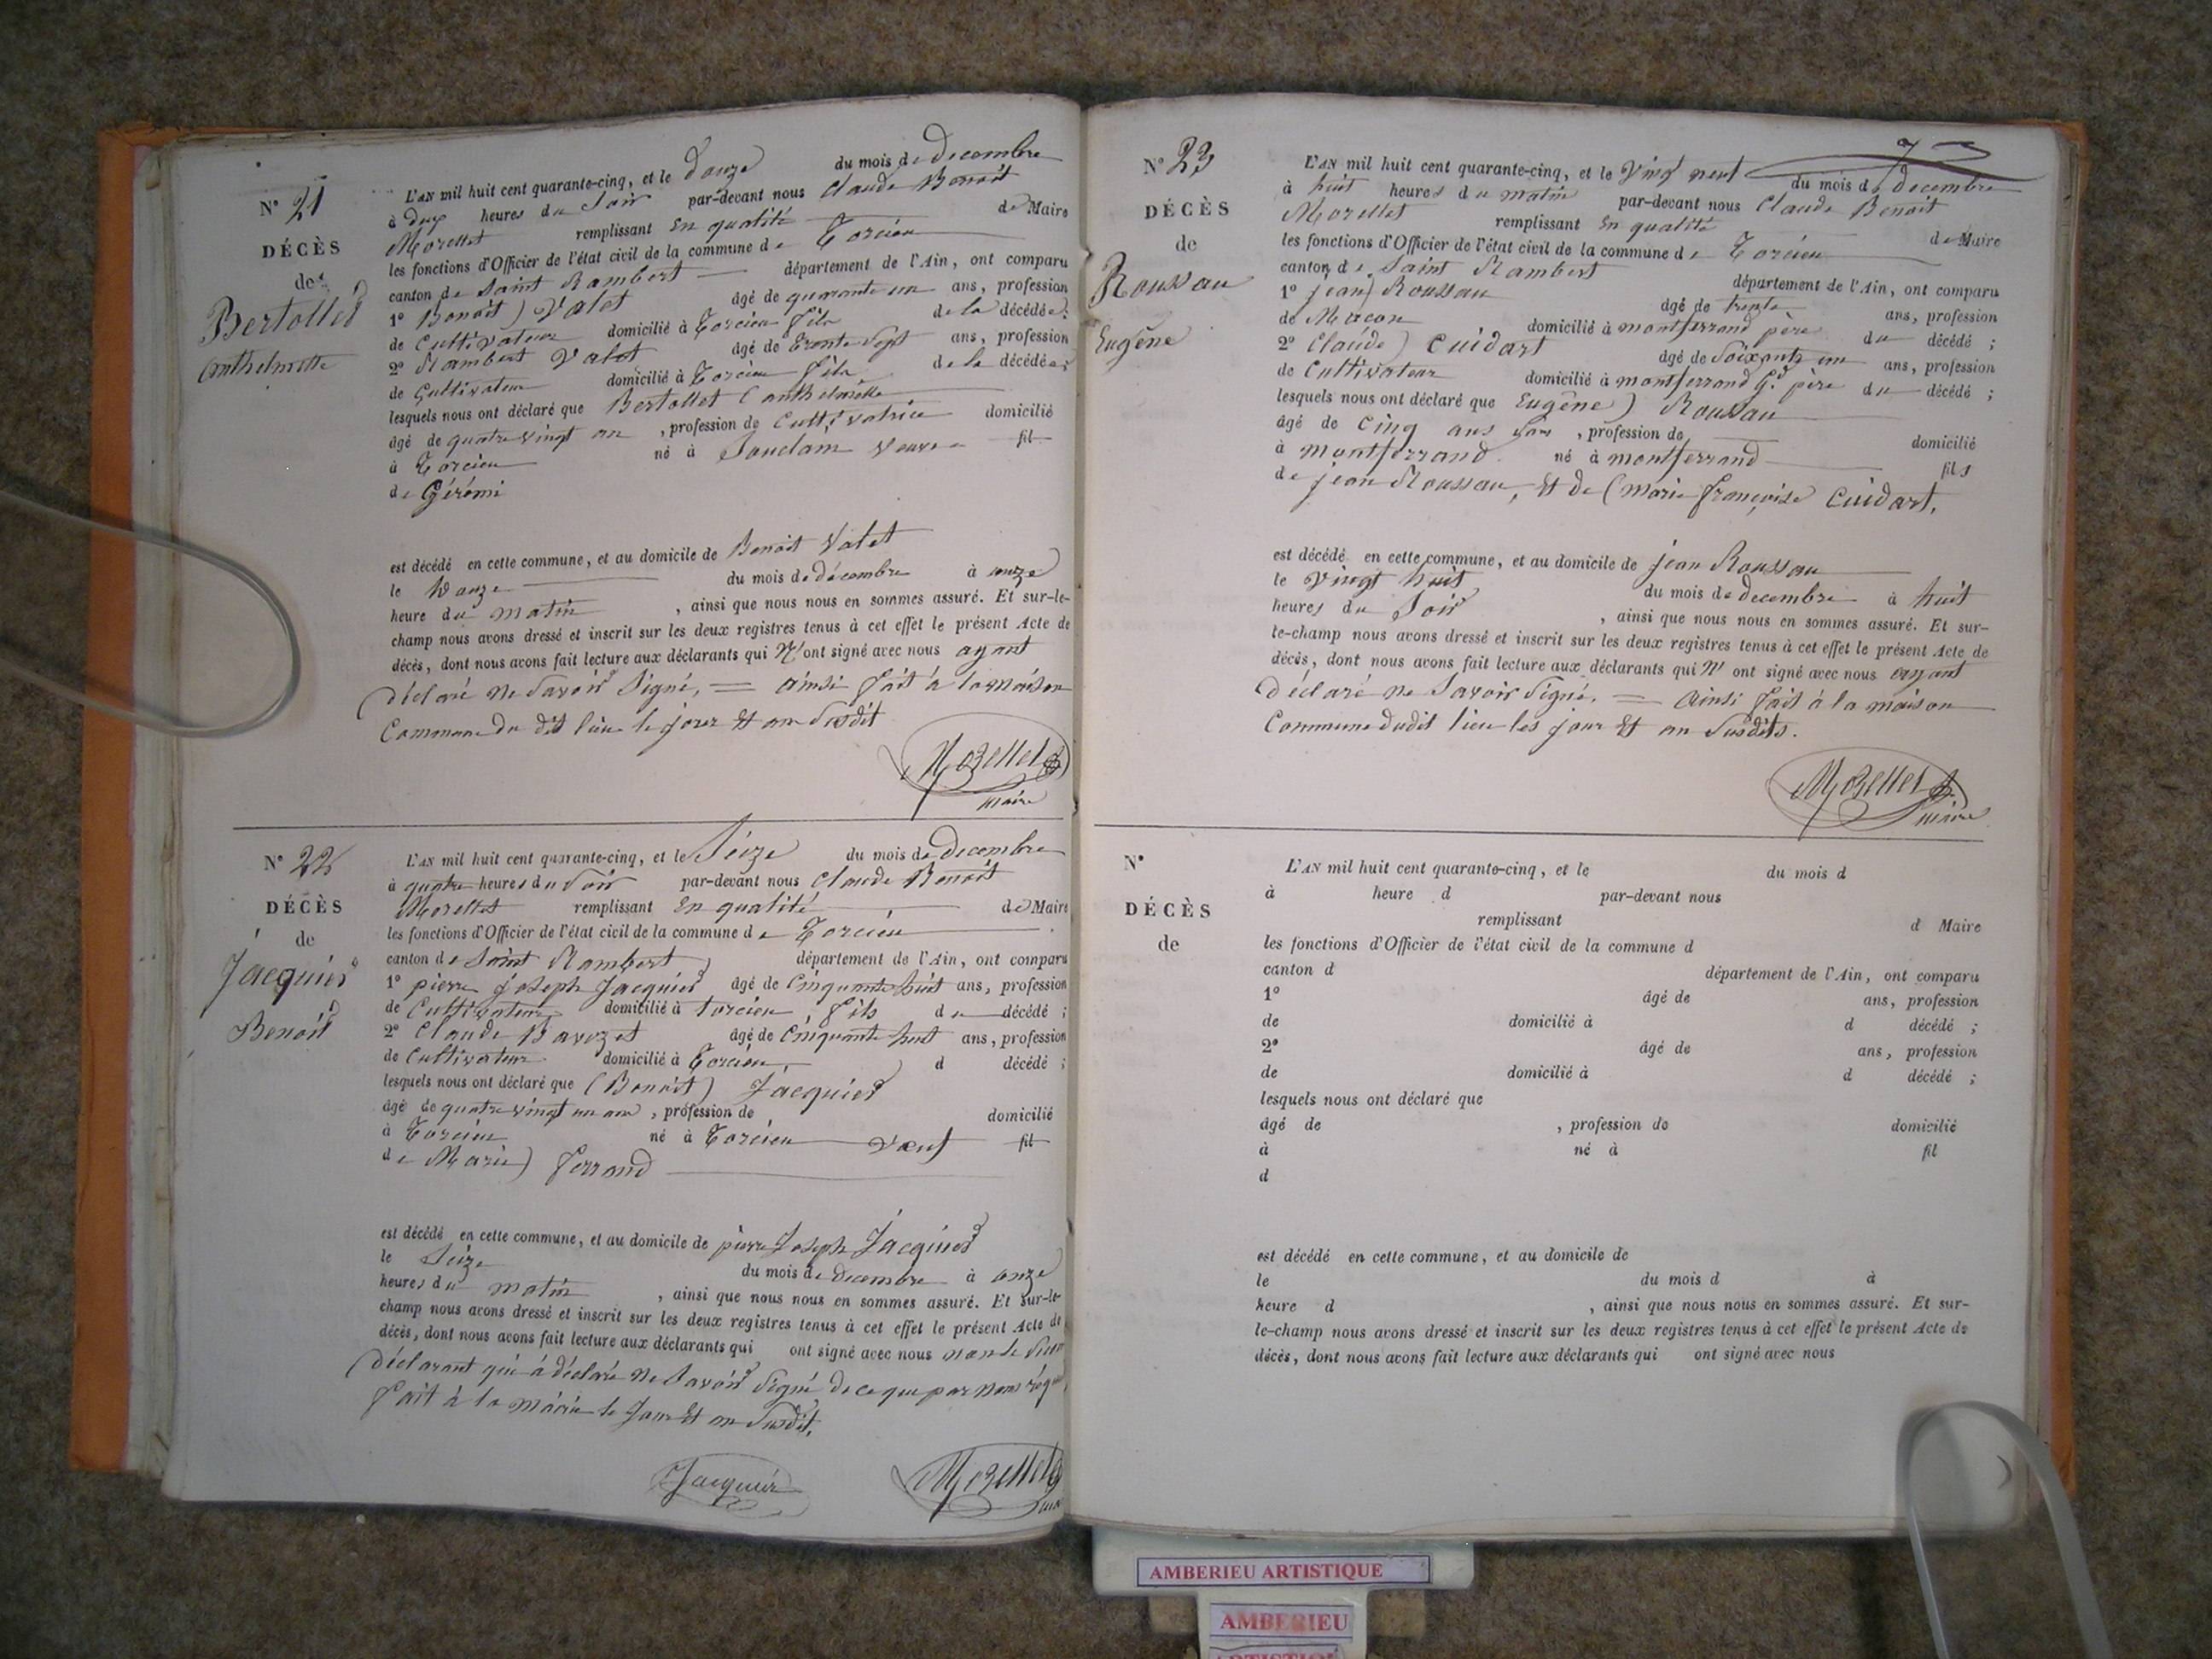 N° 21
DÉCÈS
de
Bertollet
Anthelmette
L'AN mil huit cent quarante-cinq, et le douze du mois de Decembre
à deux heures du Soir par-devant nous Claude Benoit
Morellet remplissant En qualité de Maire
les fonctions d'Officier de l'état civil de la commune de Torcieu
canton de Saint Rambert département de l'Ain, ont comparu
1° Benoit Valet âgé de quarante un ans, profession
de Cultivateur domicilié à Torcieu fils de la décédée;
2° Rambert Valet âgé de trente sept ans, profession
de Cultivateur domicilié à Torcieu fils de la décédée;
lesquels nous ont déclaré que Bertollet Anthelmette
âgé de quatre vingt an, profession de Cultivatrice domicilié
à Torcieu né à veuve fil
de Gérémi
est décédé en cette commune, et au domicile de Benoit Valet
le Douze du mois de décembre à onze
heure du matin, ainsi que nous nous en sommes assuré. Et sur-le-
champ nous avons dressé et inscrit sur les deux registres tenus à cet effet le présent Acte de
décès, dont nous avons fait lecture aux déclarants qui N'ont signé avec nous ayant
déclaré ne Savoir Signé, = ainsi fait à la maison
Commune du dit lieu le jour Et an Susdit
Morellet
maire
N° 22
DÉCÈS
de
Jacquier
Benoit
L'AN mil huit cent quarante-cinq, et le Seize du mois de Decembre
à quatre heures du Soir par-devant nous Claude Benoit
Morellet remplissant En qualité de Maire
les fonctions d'Officier de l'état civil de la commune de Torcieu
canton de Saint Rambert département de l'Ain, ont comparu
1° pierre Joseph Jacquier âgé de Cinquante huit ans, profession
de Cultivateur domicilié à torcieu fils du décédé;
2° Claude Bavozet âgé de Cinquante huit ans, profession
de Cultivateur domicilié à Torcieu d décédé;
lesquels nous ont déclaré que (Benoit) Jacquier
âgé de quatre vingt un ans, profession de domicilié
à Torcieu né à Torcieu veuf fil
de Marie Ferrand
est décédé en cette commune, et au domicile de pierre Joseph Jacquier
le Seize du mois de decembre à onze
heures du matin, ainsi que nous nous en sommes assuré. Et sur-le-
champ nous avons dressé et inscrit sur les deux registres tenus à cet effet le présent Acte de
décès, dont nous avons fait lecture aux déclarants qui ont signé avec nous non le
Déclarant qui à déclaré ne Savoir Signé de ce que par nous
fait à la mairie le Jour Et an Susdit.
Jacquier
Morellet
N° 23
DÉCÈS
de
Roussau
Eugêne
L'AN mil huit cent quarante-cinq, et le Vingt neuf du mois de decembre
à huit heures du matin par-devant nous Claude Benoit
Morellet remplissant En qualité de Maire
les fonctions d'Officier de l'état civil de la commune de Torcieu
canton de Saint Rambert département de l'Ain, ont comparu
1° jean Roussau âgé de trente ans, profession
de Macon domicilié à montferrand père du décédé;
2° Claude Cuidart âgé de Soixante un ans, profession
de Cultivateur domicilié à montferrand G.d père du décédé;
lesquels nous ont déclaré que Eugêne) Roussau
âgé de Cinq ans, profession de domicilié
à montferrand né à montferrand fils
de jean Roussau, Et de (marie françoise Cuidart.
est décédé en cette commune, et au domicile de jean Roussau
le vingt huit du mois de decembre à huit
heures du Soir, ainsi que nous nous en sommes assuré. Et sur-
le-champ nous avons dressé et inscrit sur les deux registres tenus à cet effet le présent Acte de
décès, dont nous avons fait lecture aux déclarants qui N'ont signé avec nous ayant
déclaré ne Savoir Signé. = Ainsi fait à la maison
Commune dudit lieu les jour Et an Susdits.
Morellet
maire
N°
DÉCÈS
de
L'AN mil huit cent quarante-cinq, et le du mois d
à heure d par-devant nous
remplissant d Maire
les fonctions d'Officier de l'état civil de la commune d
canton d département de l'Ain, ont comparu
1° âgé de ans, profession
de domicilié à d décédé;
2° âgé de ans, profession
de domicilié à d décédé;
lesquels nous ont déclaré que
âgé de, profession de domicilié
à né à fil
d
est décédé en cette commune, et au domicile de
le du mois d à
heure d, ainsi que nous nous en sommes assuré. Et sur-
le-champ nous avons dressé et inscrit sur les deux registres tenus à cet effet le présent Acte de
décès, dont nous avons fait lecture aux déclarants qui ont signé avec nous
AMBERIEU ARTISTIQUE
AMBERIEU
ARTISTIQUE